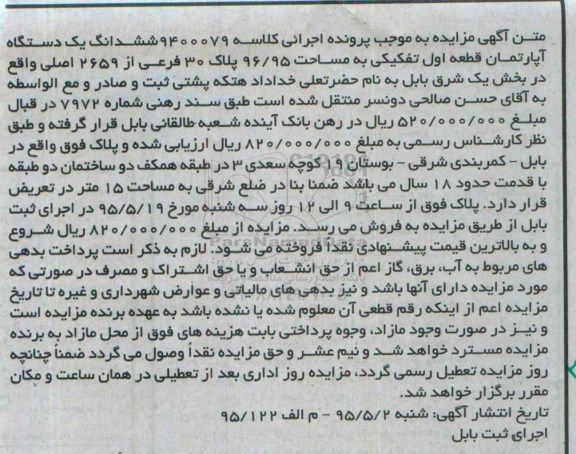 متن آگهی مزایده به موجب پرونده اجرائی کلاسه ۹۴۰۰۰۷۹ ششدانگ یک دستگاه
آپارتمان قطعه اول تفکیکی به مساحت ۹۶/۹۵ پلاک ۳۰ فرعی از ۲۶۵۹ اصلی واقع
در بخش یک شرق بابل به نام حضرتعلی خداداد هتکه پشتی ثبت و صادر و مع الواسطه
به آقای حسن صالحی دونسر منتقل شده است طبق سند رهنی شماره ۷۹۷۲ در قبال
مبلغ ۵۲۰/۰۰۰/۰۰۰ ریال در رهن بانک آینده شعبه طالقانی بابل قرار گرفته و طبق
نظر کارشناس رسمی به مبلغ ۸۲۰/۰۰۰/۰۰۰ ریال ارزیابی شده و پلاک فوق واقع در
بابل - کمربندی شرقی - بوستان ۱۹ کوچه سعدی ۳ در طبقه همکف دو ساختمان دو طبقه
با قدمت حدود ۱۸ سال می باشد ضمنا بنا در ضلع شرقی به مساحت ۱۵ متر در تعریض
قرار دارد. پلاک فوق از ساعت ۹ الی ۱۲ روز سه شنبه مورخ ۹۵/۵/۱۹ در اجرای ثبت
بابل از طریق مزایده به فروش می رسد. مزایده از مبلغ ۸۲۰/۰۰۰/۰۰۰ ریال شروع
و به بالاترین قیمت پیشنهادی نقداً فروخته می شود. لازم به ذکر است پرداخت بدهی
های مربوط به آب، برق، گاز اعم از حق انشعاب و یا حق اشتراک و مصرف در صورتی که
مورد مزایده دارای آنها باشد و نیز بدهی های مالیاتی و عوارض شهرداری و غیره تا تاریخ
مزایده اعم از اینکه رقم قطعی آن معلوم شده یا نشده باشد به عهده برنده مزایده است
و نیز در صورت وجود مازاد، وجوه پرداختی بابت هزینه های فوق از محل مازاد به برنده
مزایده مسترد خواهد شد و نیم عشر و حق مزایده نقداً وصول می گردد ضمناً چنانچه
روز مزایده تعطیل رسمی گردد، مزایده روز اداری بعد از تعطیلی در همان ساعت و مکان
مقرر برگزار خواهد شد.
تاریخ انتشار آگهی: شنبه ۹۵/۵/۲ - م الف ۹۵/۱۲۲
اجرای ثبت بابل